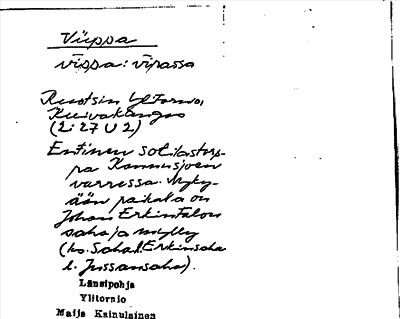 Viippa
vīppa : vīpassa
Ruotsin Ylitornio,
Kuivakangas
(2:27 U 2)
Entinen sotilastorp-
pa Kannusjoen
varressa. Nyky-
ään paikala on
Johan ErkinTalon
saha ja mylly
(ks. Saha l. Erkinsaha
l. Jussansaha).
Länsipohja
Ylitornio
Maija Kainulainen